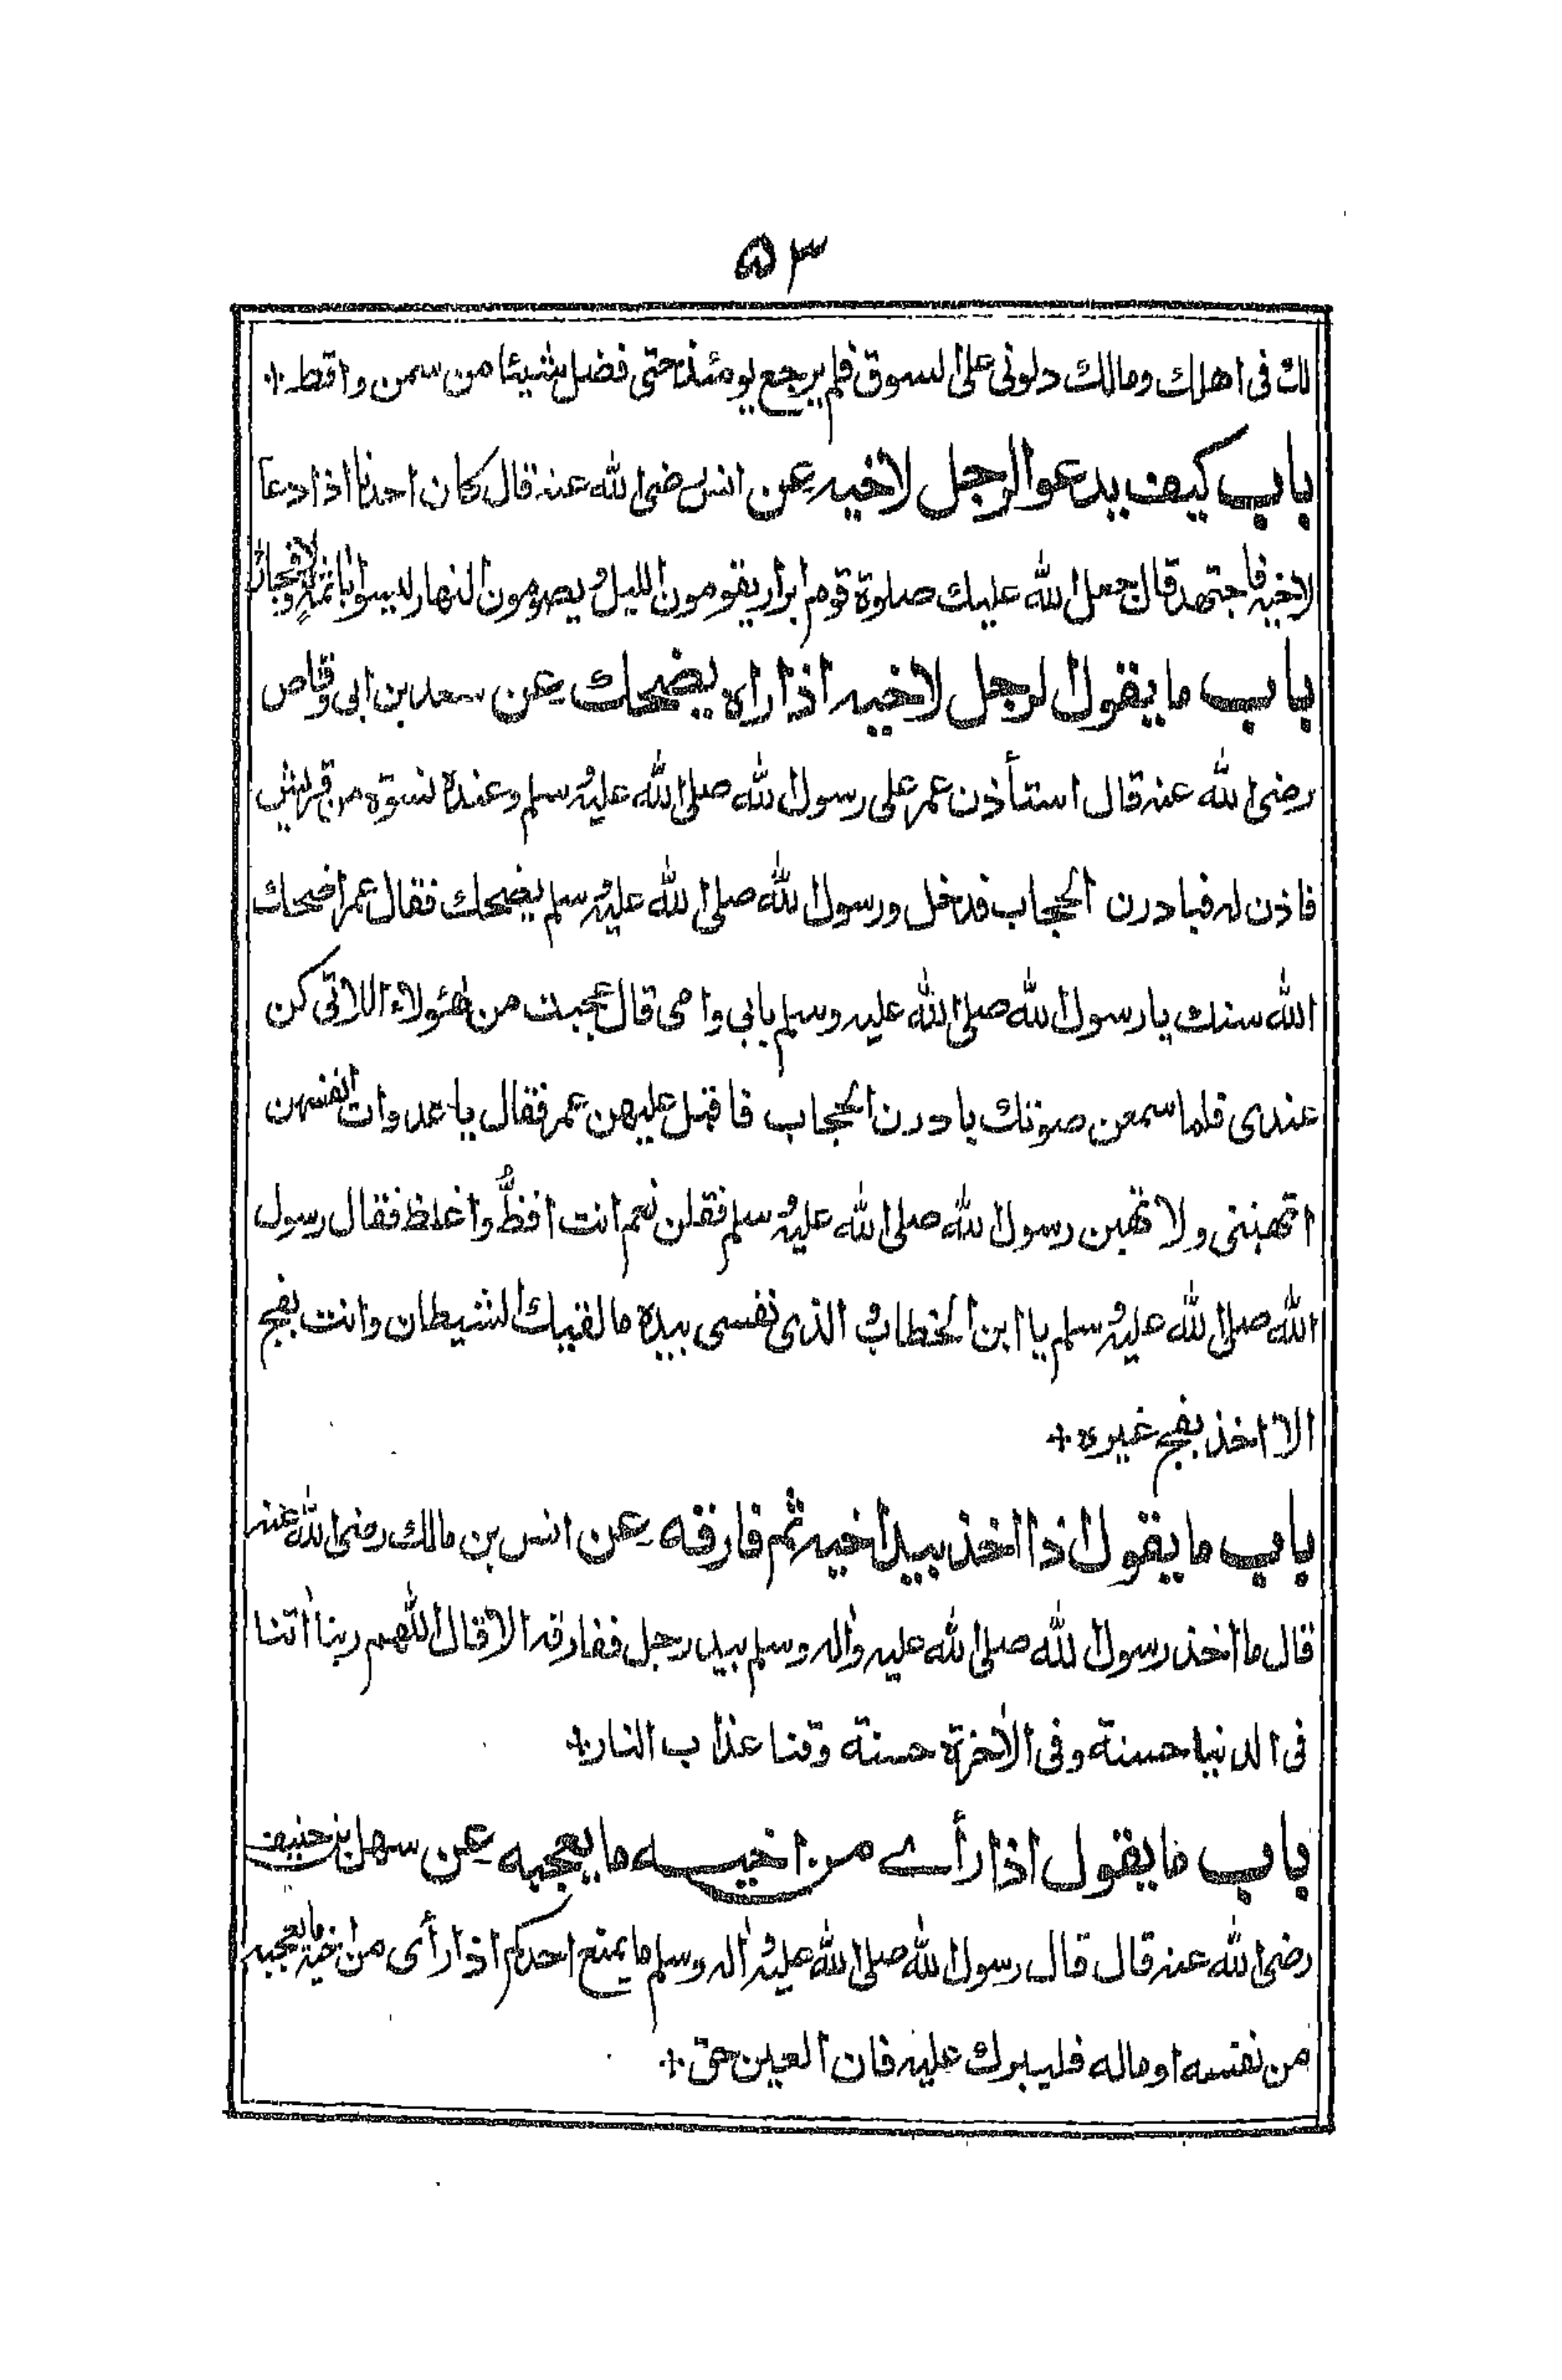 ۵۳
لك فى اهلك ومالك دلونى على السوق فلم يرجع يومئذ حتى فضل شيئا من سمن واقط +
باب كيف يدعو الرجل لاخيه عن انس رضى الله عنه قال كان احدنا اذا دعا
لاخيه فاجتهد قال جعل الله عليك صلوة قوم ابرار يقومون الليل ويصومون النهار ليسوا باثمة ولا فجار
باب ما يقول الرجل لاخيه اذا راه يضحك عن سعد بن ابى وقاص
رضى الله عنه قال استأذن عمر على رسول الله صلى الله عليه وسلم وعنده نسوة من قريش
فاذن له فبادرن الحجاب فدخل ورسول الله صلى الله عليه وسلم يضحك فقال عمر اضحك
الله سنك يا رسول الله صلى الله عليه وسلم بابى وامى قال عجبت من هٰؤلاء اللاتى كن
عندى فلما سمعن صوتك بادرن الحجاب فاقبل عليهن عمر فقال يا عدوات انفسهن
اتهبننى ولا تهبن رسول الله صلى الله عليه وسلم فقلن نعم انت افظُّ واغلظ فقال رسول
الله صلى الله عليه وسلم يا ابن الخطاب والذى نفسى بيده ما لقيك الشيطان وانت بفج
الا اخذ بفج غيره +
باب ما يقول اذا اخذ بيد اخيه ثم فارقه عن انس بن مالك رضى الله عنه
قال ما اخذ رسول الله صلى الله عليه واٰله وسلم بيد رجل ففارقه الا قال اللٰهم ربنا اٰتنا
فى الدنيا حسنة وفى الاٰخرة حسنة وقنا عذاب النار +
باب ما يقول اذا رأے من اخيه ما يعجبه عن سهل بن حنيف
رضى الله عنه قال قال رسول الله صلى الله عليه واٰله وسلم ما يمنع احدكم اذا رأى من اخيه ما يعجبه
من نفسه او ماله فليبرك عليه فان العين حق +